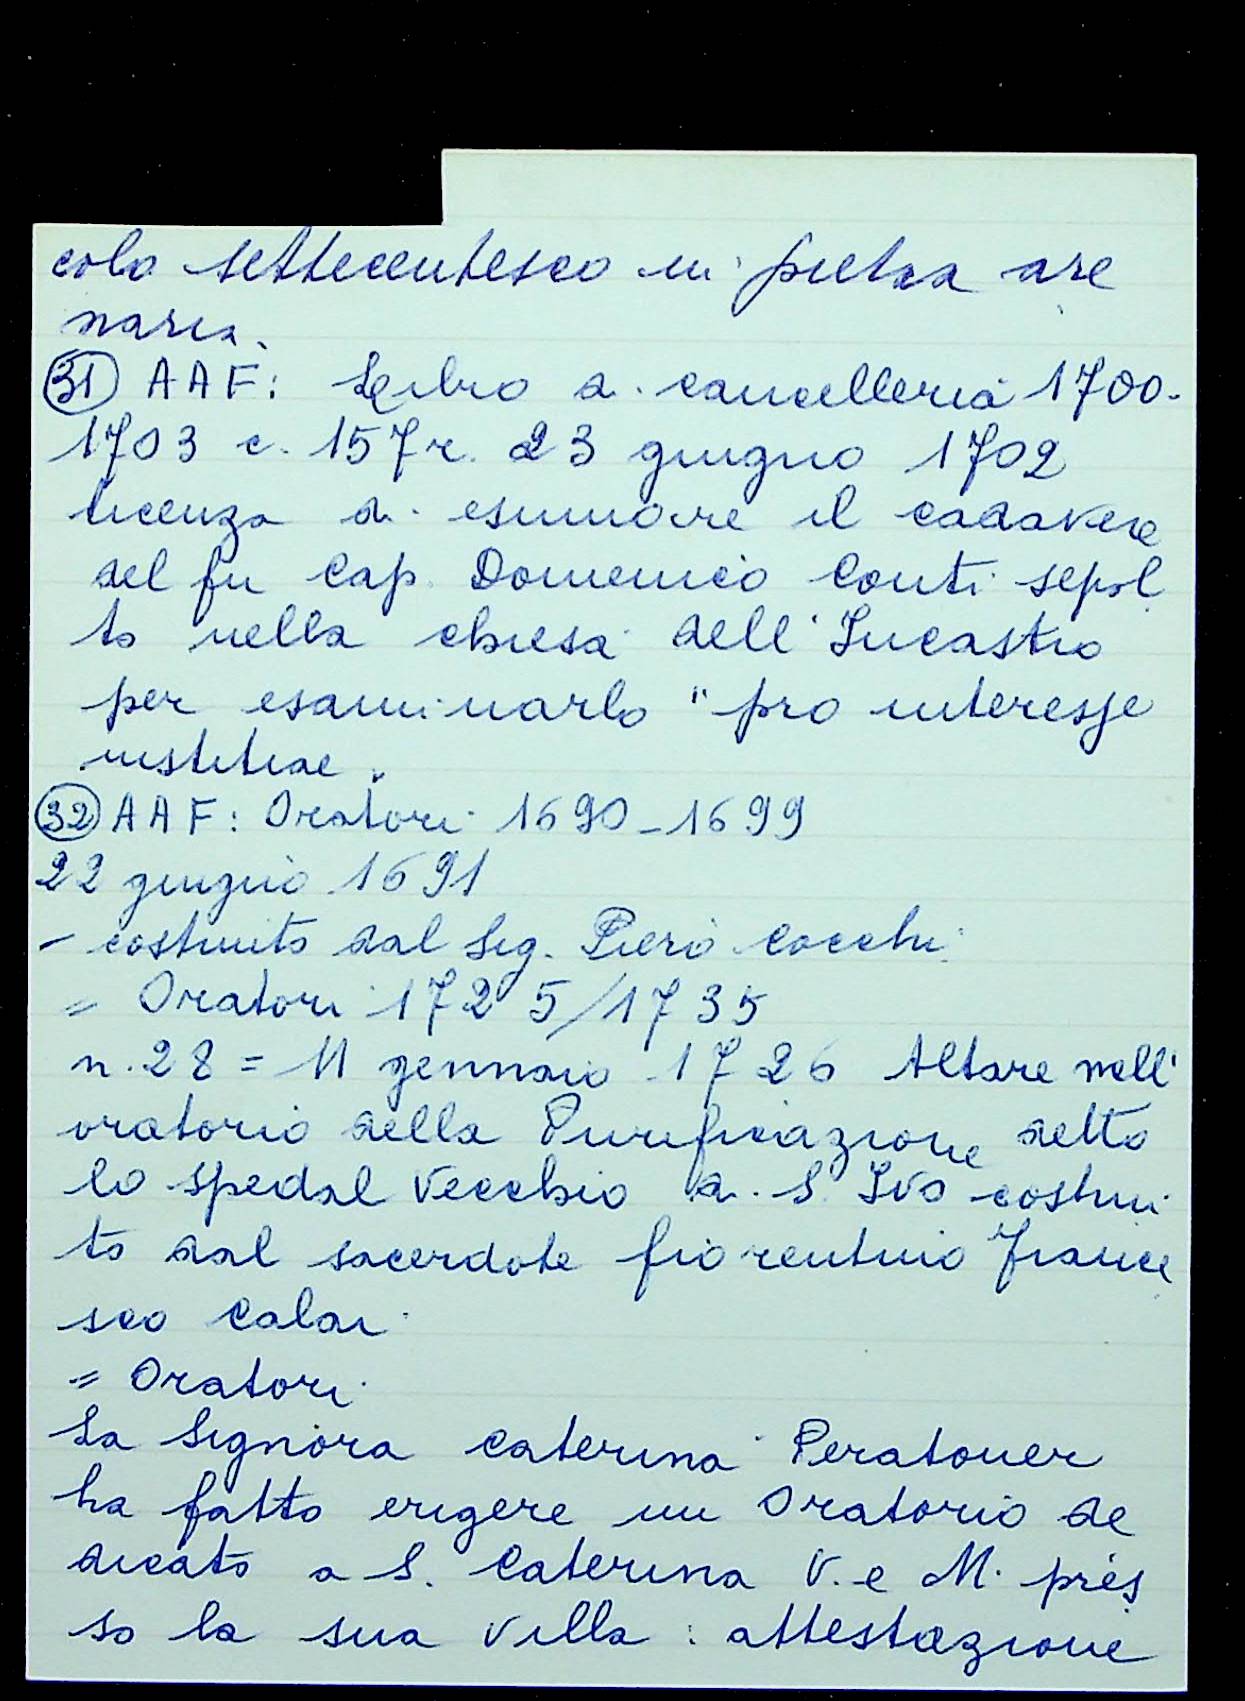 colo settecentesco in pietra are
naria.
(31) AAF: Libro di cancelleria 1700-
1703 c. 157r. 23 giugno 1702
licenza di esumare il cadavere
del fu Cap. Domenico Conti sepol
to nella chiesa dell'Incastro
per esaminarlo "pro interesse
iustitiae".
(32) AAF: Oratori 1690-1699
22 giugno 1691
- costruito dal Sig. Piero Cocchi
= Oratori 1725/1735
n. 28 = 11 gennaio 1726 Altare nell'
oratorio della Purificazione detto
lo spedal Vecchio di S. Ivo costrui
to dal sacerdote fiorentino France
sco Calai
= Oratori
La Signora Caterina Peratoner
ha fatto erigere un Oratorio de
dicato a S. Caterina V. e M. pres
so la sua villa: attestazione